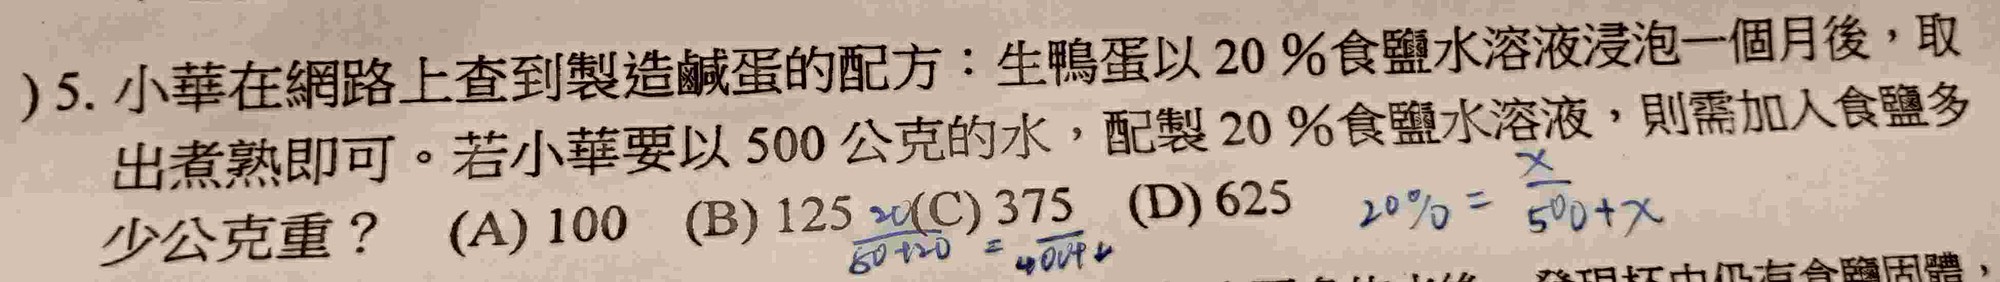 )5. 小華在網路上查到製造鹹蛋的配方：生鴨蛋以 20 %食鹽水溶液浸泡一個月後，取
出煮熟即可。若小華要以 500 公克的水，配製 20 %食鹽水溶液，則需加入食鹽多
少公克重？ (A) 100 (B) 125 (C) 375 (D) 625
20% = x / 500+x